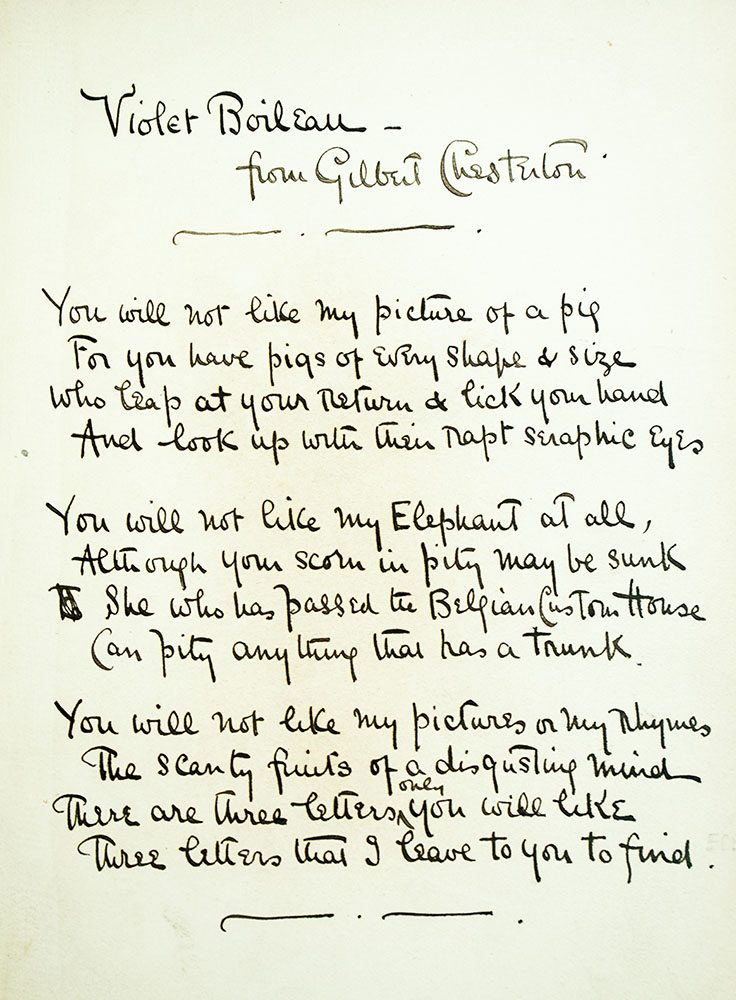 Violet Boileau –
from Gilbert Chesterton.
You will not like my picture of a pig
For you have pigs of every shape & size
Who leap at your return & lick your hand
And look up with their rapt seraphic eyes
You will not like my Elephant at all,
Although your scorn in pity may be sunk
She who has passed the Belgian Custom House
Can pity anything that has a trunk.
You will not like my pictures or my rhymes
The scanty fruits of a disgusting mind
There are three letters only you will like
Three letters that I leave to you to find.